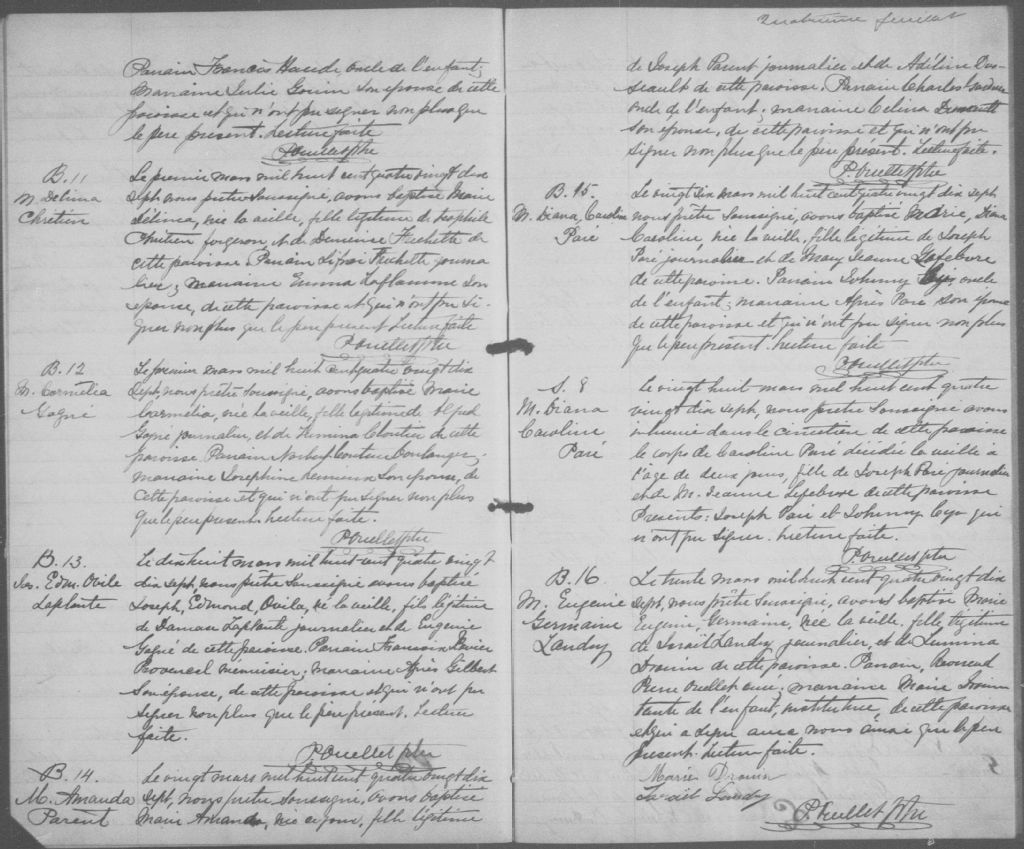 Parrain Francois Houde oncle de l'enfant;
marraine Leslie Gouin son épouse de cette
paroisse et qui n'ont pu signer non plus que
le père présent. Lecture faite
P. Ouellet Ptre
B. 11
M. Delima
Chretien
Le premier mars mil huit cent quatre vingt dix
sept nous prêtre soussigné, avons baptisé Marie
Délima, née la veille, fille légitime de Théophile
Chrétien forgeron, et de Demerise Frechette de
cette paroisse. Parrain Frechette journa
lier; marraine Emma Laflamme son
épouse, de cette paroisse et qui n'ont pu si-
gner non plus que le père présent Lecture faite
P. Ouellet Ptre
B. 12
M. Cormélia
Gagné
Le premier mars mil huit cent quatre vingt dix
sept, nous prêtre soussigné, avons baptisé Marie
Cormélia, née la veille, fille légitime d'Alfred
Gagné journalier, et de Cloutier de cette
paroisse. Parrain Norbert Couture Boulanger;
marraine Josephine Lemieux son épouse, de
cette paroisse et qui n'ont pu signer non plus
que le père présent. Lecture faite.
P. Ouellet Ptre
B. 13.
Jos. Edm. Ovila
Laplante
Le dix huit mars mil huit cent quatre vingt
dix sept, nous prêtre soussigné avons baptisé
Joseph, Edmond, Ovila, né la veille, fils légitime
de Damase Laplante journalier et de Eugenie
Gagné de cette paroisse. Parrain Francois Xavier
Provencal menuisier; marraine Agnès Gilbert
son épouse, de cette paroisse et qui n'ont pu
signer non plus que le père présent. Lecture
faite.
P. Ouellet ptre
B. 14.
M. Amanda
Parent
Le vingt mars mil huit cent quatre vingt dix
sept, nous prêtre soussigné, avons baptisé
Marie Amanda, née ce jour, fille légitime
Quatrieme feuillet
de Joseph Parent journalier et de Adéline Dus-
seault de cette paroisse. Parrain Charles
oncle de l'enfant; marraine Celina
son épouse, de cette paroisse et qui n'ont pu
signer non plus que le père présent. Lecture faite.
P. Ouellet Ptre
B. 15.
M. Diana, Caroline
Paré
Le vingt six mars mil huit cent quatre vingt dix sept
nous prêtre soussigné, avons baptisé Marie, Diana
Caroline, née la veille, fille légitime de Joseph
Paré journalier et de Mary Jeanne Lefebvre
de cette paroisse. Parrain Johnny Cyr oncle
de l'enfant; marraine Agnès Paré son épouse
de cette paroisse et qui n'ont pu signer non plus
que le père présent. Lecture faite
P. Ouellet Ptre
S. 8
M. Diana
Caroline
Paré
Le vingt huit mars mil huit cent quatre
vingt dix sept, nous prêtre soussigné avons
inhumé dans le cimetière de cette paroisse
le corps de Caroline Paré décédée la veille a
l'age de deux jours, fille de Joseph Paré journalier
et de M. Jeanne Lefebvre de cette paroisse
Presents: Joseph Paré et Johnny Cyr qui
n'ont pu signer. Lecture faite.
P. Ouellet ptre
B. 16
M. Eugenie
Germaine
Landry
Le trente mars mil huit cent quatre vingt dix
sept, nous prêtre soussigné, avons baptisé Marie
Eugenie, Germaine, née la veille, fille légitime
de Israël Landry journalier, et de Lumina
Drouin de cette paroisse. Parrain, Reverend
Pierre Ouellet curé; marraine Marie Drouin
tante de l'enfant, institutrice, de cette paroisse
et qui a signé avec nous ainsi que le père
présent. Lecture faite.
Marie Drouin
Israël Landry
P. Ouellet Ptre